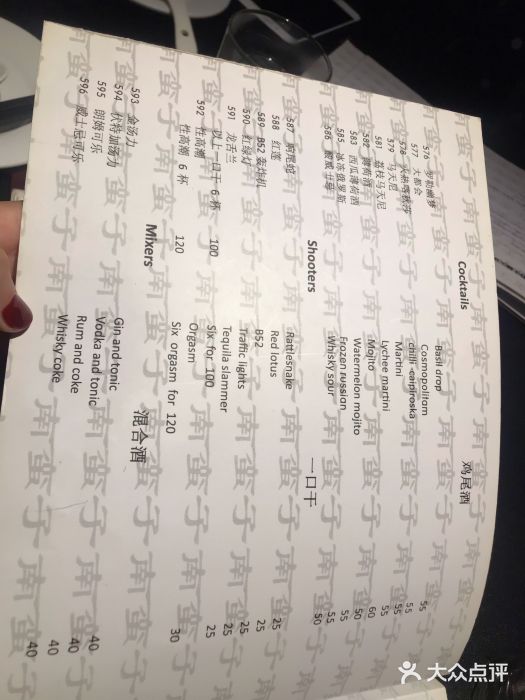 Cocktails 鸡尾酒
576 罗勒幽梦 Basil drop 55
577 大都会 Cosmopolitam 55
578 火热喀秋莎 chilli caipiroska 55
579 马天尼 Martini 55
581 荔枝马天尼 Lychee martini 55
582 薄荷酒 Mojito 60
583 西瓜薄荷酒 Watermelon mojito 50
585 冰冻俄罗斯 Frozen russian 55
586 酸威士忌 Whisky sour 55
50
Shooters 一口干
587 响尾蛇 Rattlesnake 25
588 红莲 Red lotus
589 B52 轰炸机 B52 25
590 红绿灯 Traffic lights 25
591 龙舌兰 Tequila slammer 25
以上一口干 6 杯 100 Six for 100 25
592 性高潮 Orgasm
性高潮 6 杯 120 Six orgasm for 120 30
Mixers 混合酒
593 金汤力 Gin and tonic 40
594 伏特加汤力 Vodka and tonic 40
595 朗姆可乐 Rum and coke 40
596 威士忌可乐 Whisky coke 40
南蛮子
大众点评